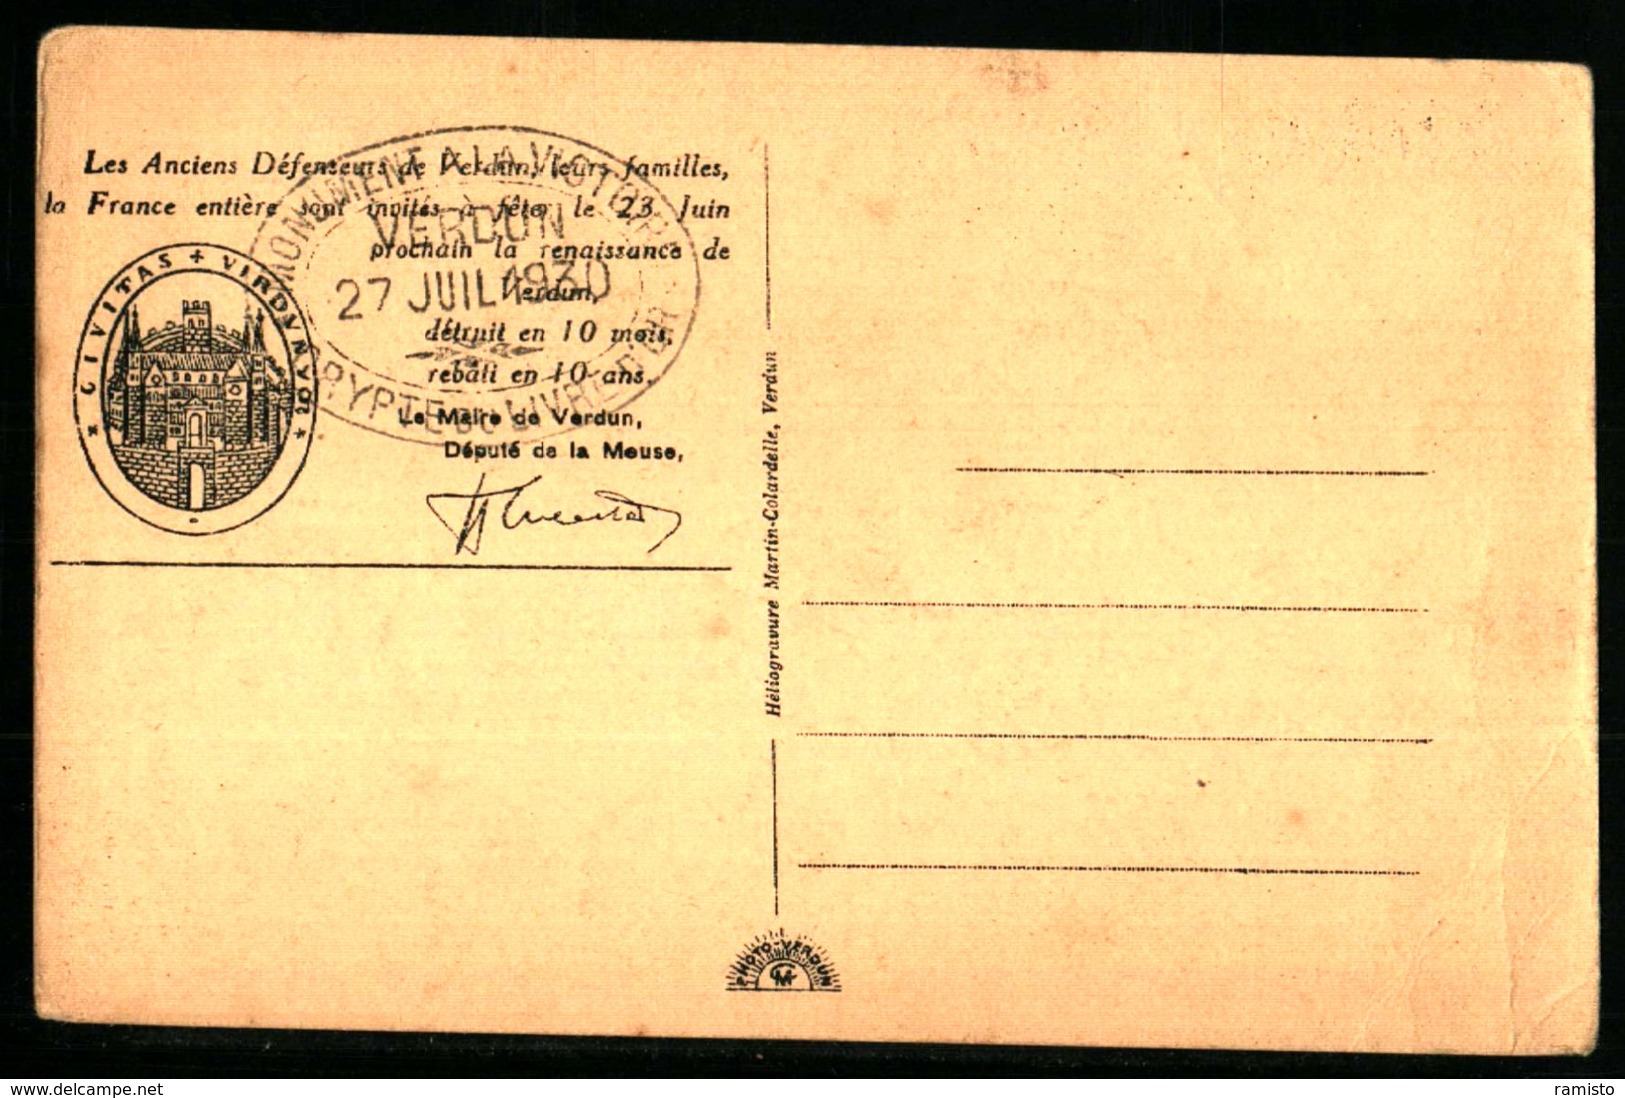 Les Anciens Défenseurs de Verdun, leurs familles,
la France entière sont invités à fêter le 23 Juin
prochain la renaissance de
Verdun,
détruit en 10 mois,
rebâti en 10 ans.
Le Maire de Verdun,
Député de la Meuse,
CIVITAS + VIRDVNVM
MONUMENT A LA VICTOIRE
VERDUN
27 JUIL 1930
CRYPTE DU LIVRE D'OR
Héliogravure Martin-Colardelle, Verdun
PHOTO-VERDUN
CM
delcampe.net
ramisto